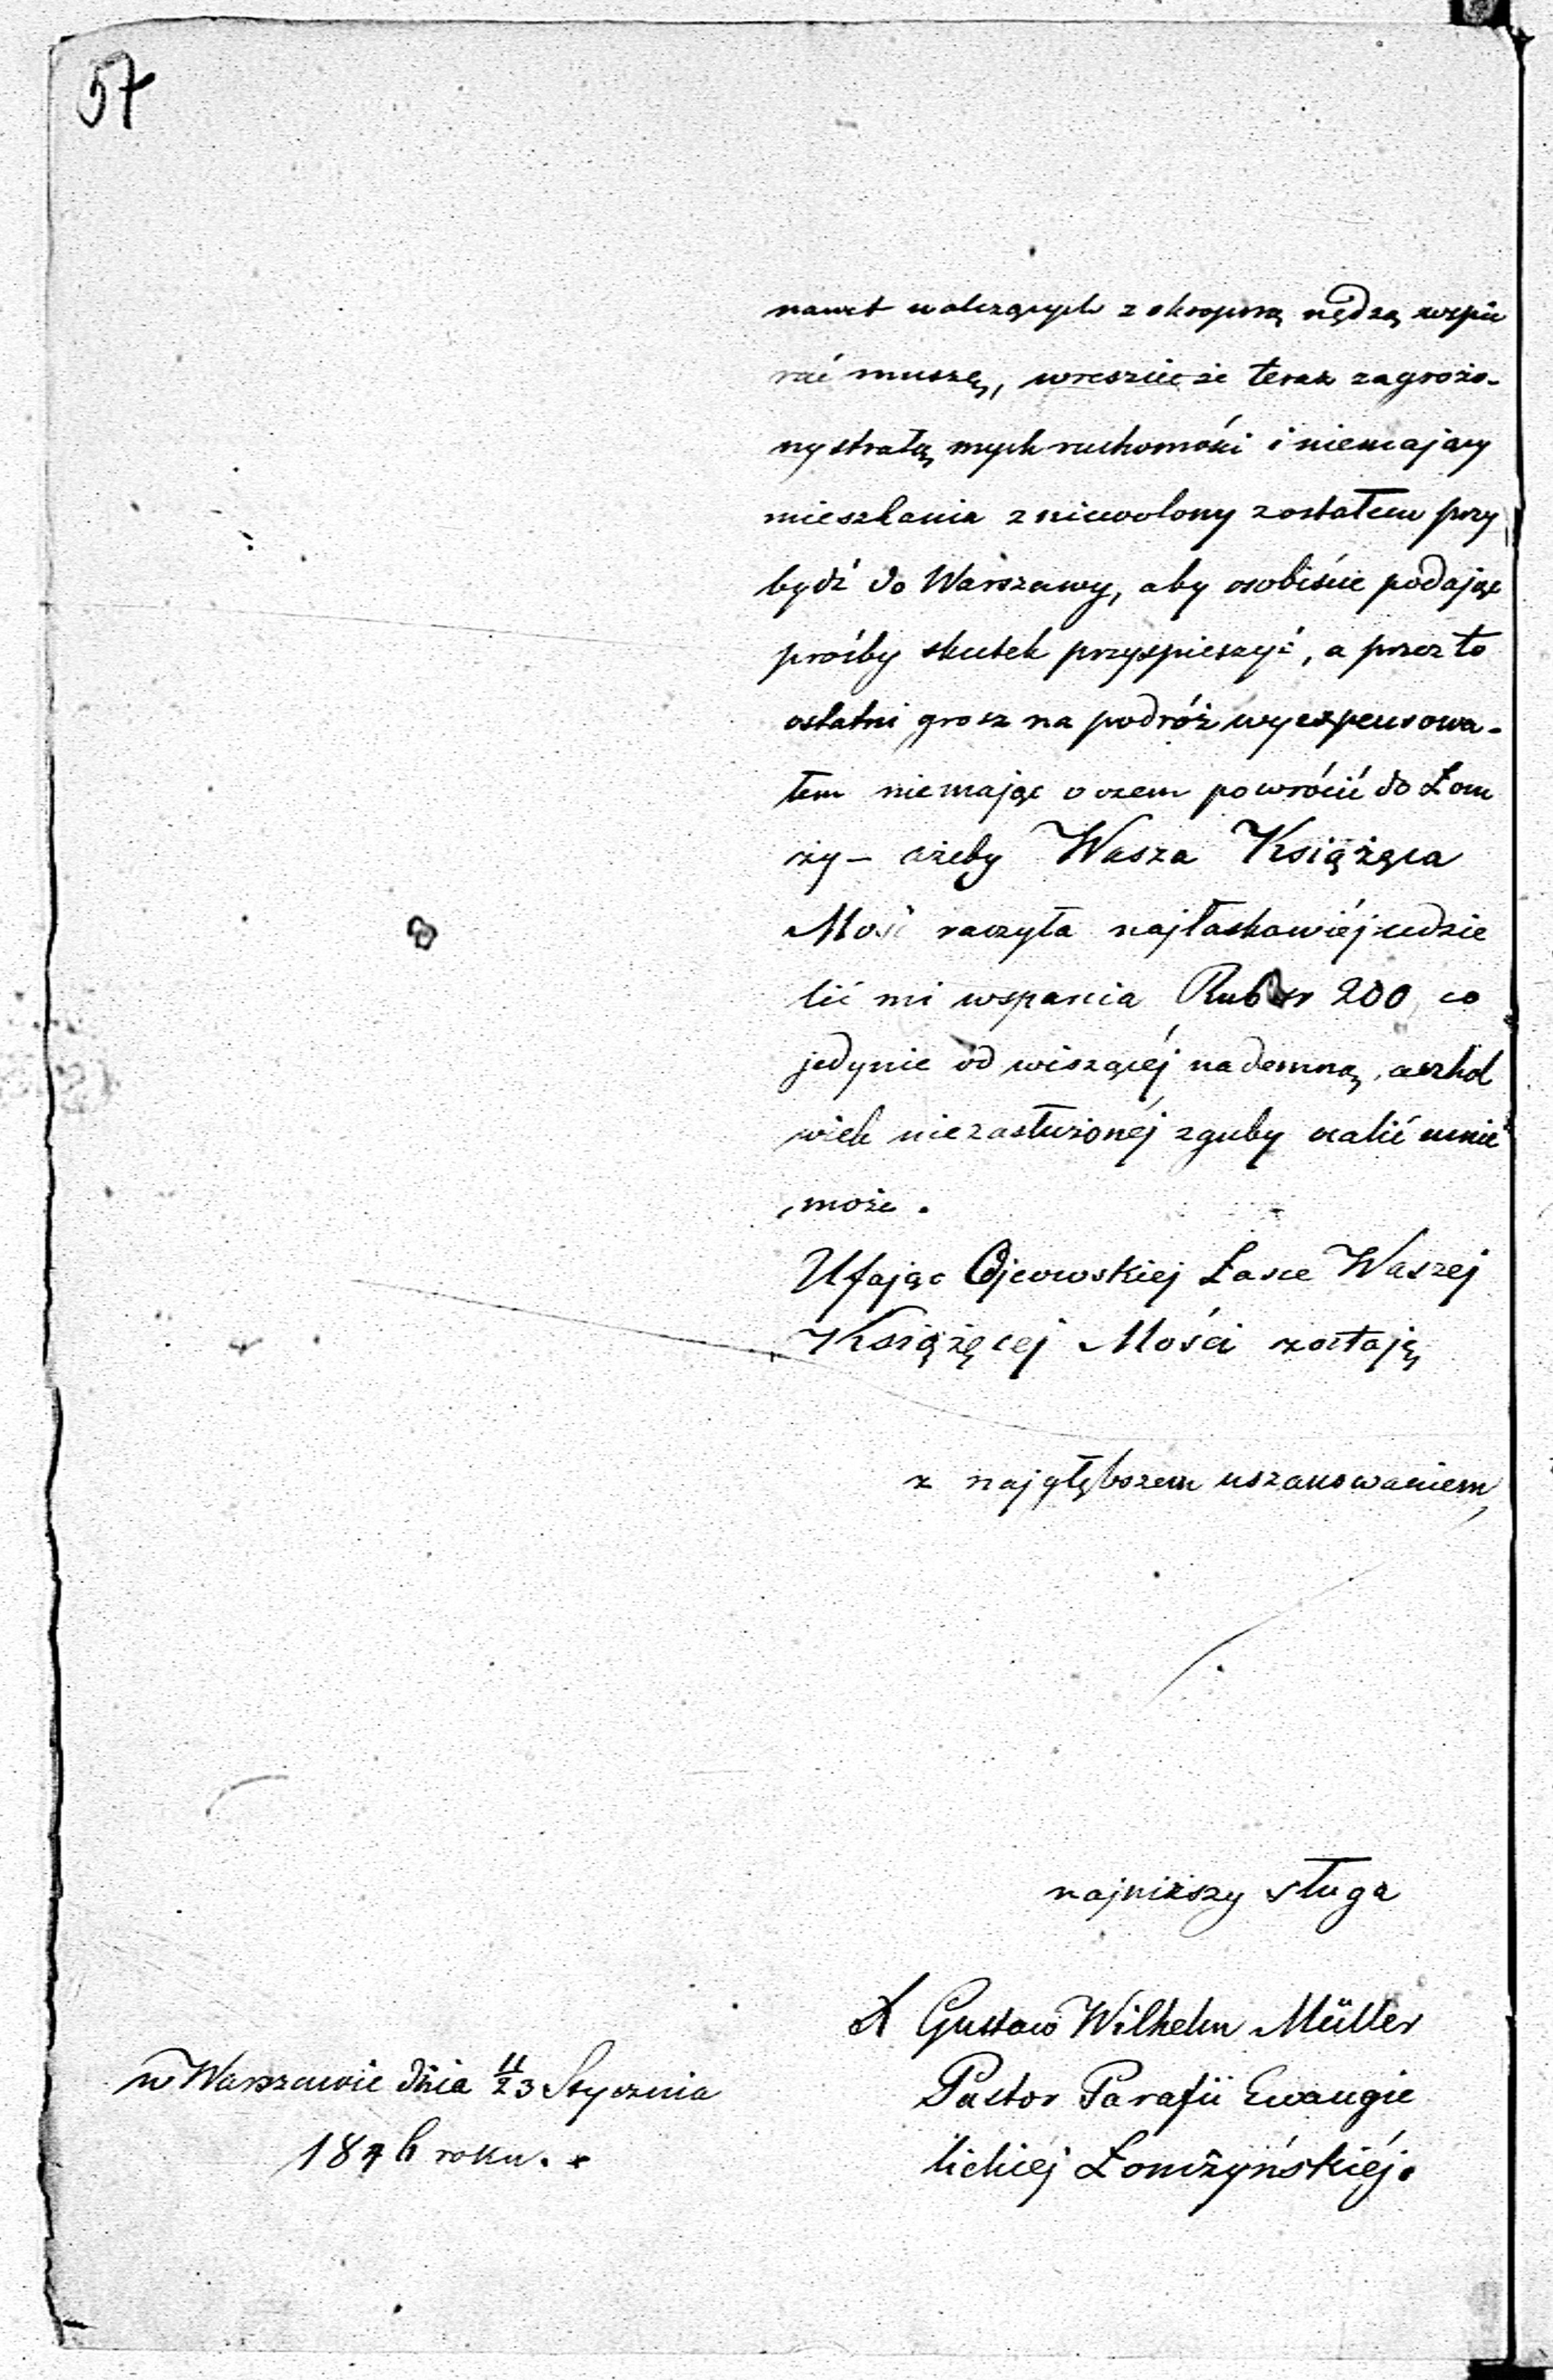 57
nawet walczących z okropną nędzą wspie
rać muszę, wreszcie że teraz zagrożo-
ny stratą mych ruchomości i niemający
mieszkania zniewolony zostałem przy
bydź do Warszawy, aby osobiście podając
prośby skutek przyspieszyć, a przez to
ostatni grosz na podróż wyexpensowa-
łem niemając o czem powrócić do Łom
ży – ażeby Wasza Książęca
Mość raczyła najłaskawiéj udzie
lić mi wsparcia Rub sr 200, co
jedynie od wiszącéj nademną, aczkol
wiek niezasłużonéj zguby ocalić mnie
może.
Ufając Ojcowskiej Łasce Waszej
Książęcej Mości zostaję
z najgłębszem uszanowaniem,
najniższy sługa
X Gustaw Wilhelm Müller
Pastor Parafii Ewangie
lickiéj Łomżyńskiéj.
w Warszawie dnia 11/23 Stycznia
1846 roku.